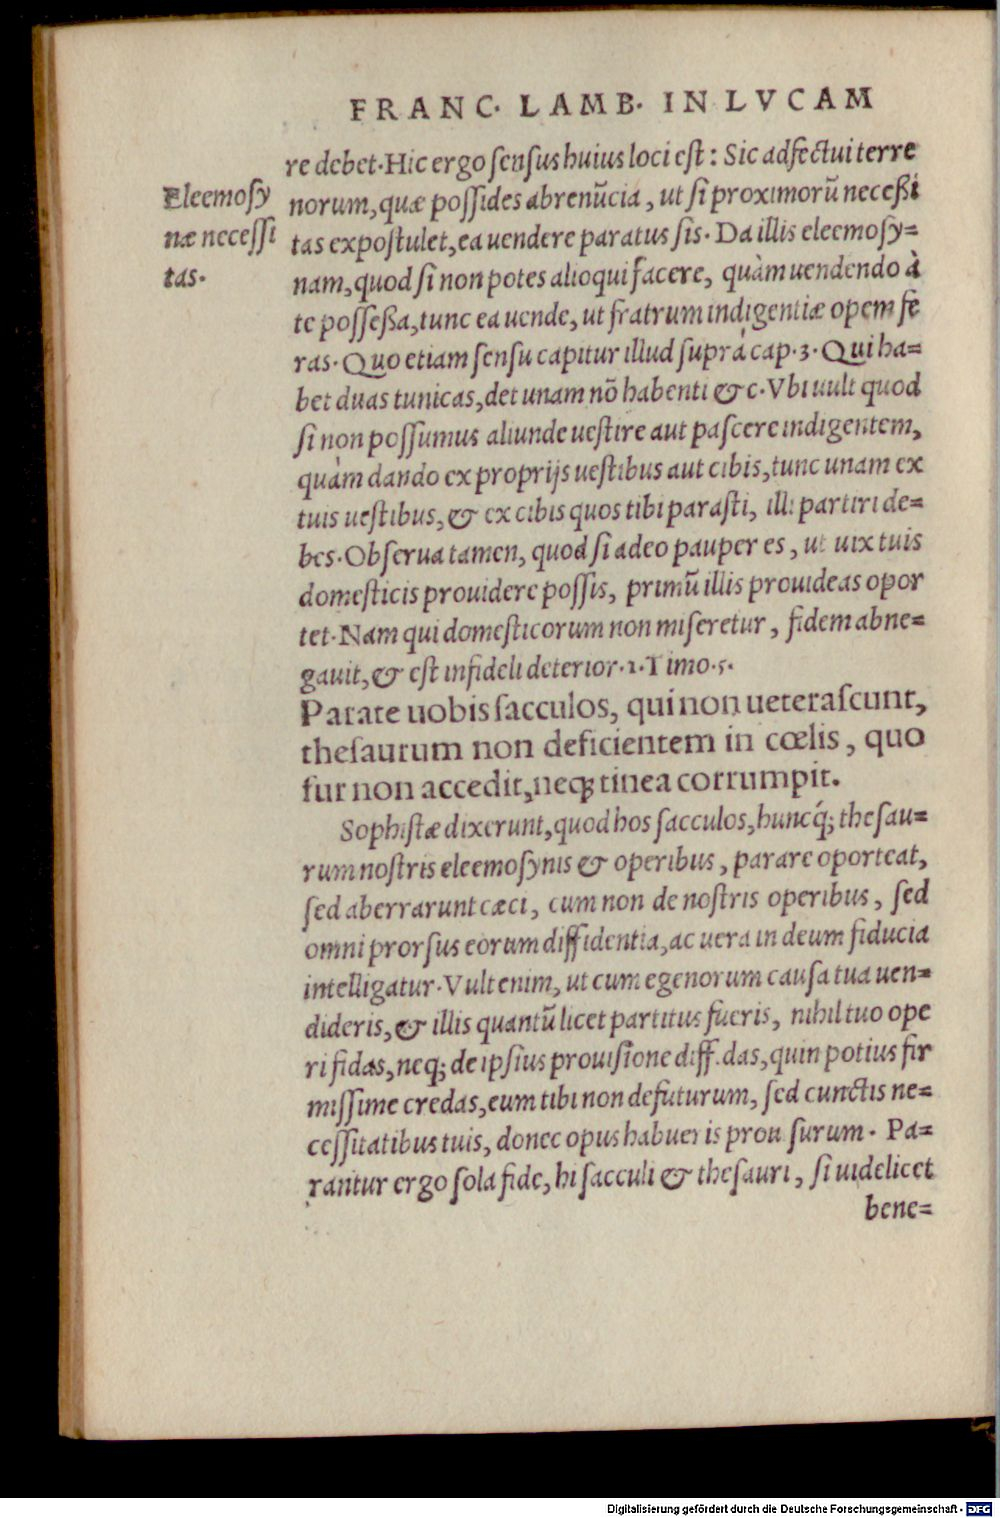 FRANC. LAMB. IN LVCAM
re debet. Hic ergo sensus huius loci est: Sic adfectui terre
Eleemosy
næ necessi
tas.
norum, quæ possides abrenũcia, ut si proximorũ neceßi
tas expostulet, ea uendere paratus sis. Da illis eleemosy=
nam, quod si non potes alioqui facere, quàm uendendo à
te posseßa, tunc ea uende, ut fratrum indigentiæ opem fe
ras. Quo etiam sensu capitur illud supra cap. 3. Qui ha=
bet duas tunicas, det unam nõ habenti &c. Vbi uult quod
si non possumus aliunde uestire aut pascere indigentem,
quàm dando ex proprijs uestibus aut cibis, tunc unam ex
tuis uestibus, & ex cibis quos tibi parasti, illi partiri de=
bes. Obserua tamen, quod si adeo pauper es, ut uix tuis
domesticis prouidere possis, primũ illis prouideas opor
tet. Nam qui domesticorum non miseretur, fidem abne=
gauit, & est infideli deterior. 1. Timo. 5.
Parate uobis sacculos, qui non ueterascunt,
thesaurum non deficientem in cœlis, quo
fur non accedit, neq; tinea corrumpit.
Sophistæ dixerunt, quod hos sacculos, huncq́; thesau=
rum nostris eleemosynis & operibus, parare oporteat,
sed aberrarunt cæci, cum non de nostris operibus, sed
omni prorsus eorum diffidentia, ac uera in deum fiducia
intelligatur. Vult enim, ut cum egenorum causa tua uen=
dideris, & illis quantũ licet partitus fueris, nihil tuo ope
ri fidas, neq; de ipsius prouisione diffidas, quin potius fir
missime credas, eum tibi non defuturum, sed cunctis ne=
cessitatibus tuis, donec opus habueris prouisurum. Pa=
rantur ergo sola fide, hi sacculi & thesauri, si uidelicet
bene=
Digitalisierung gefördert durch die Deutsche Forschungsgemeinschaft - DFG